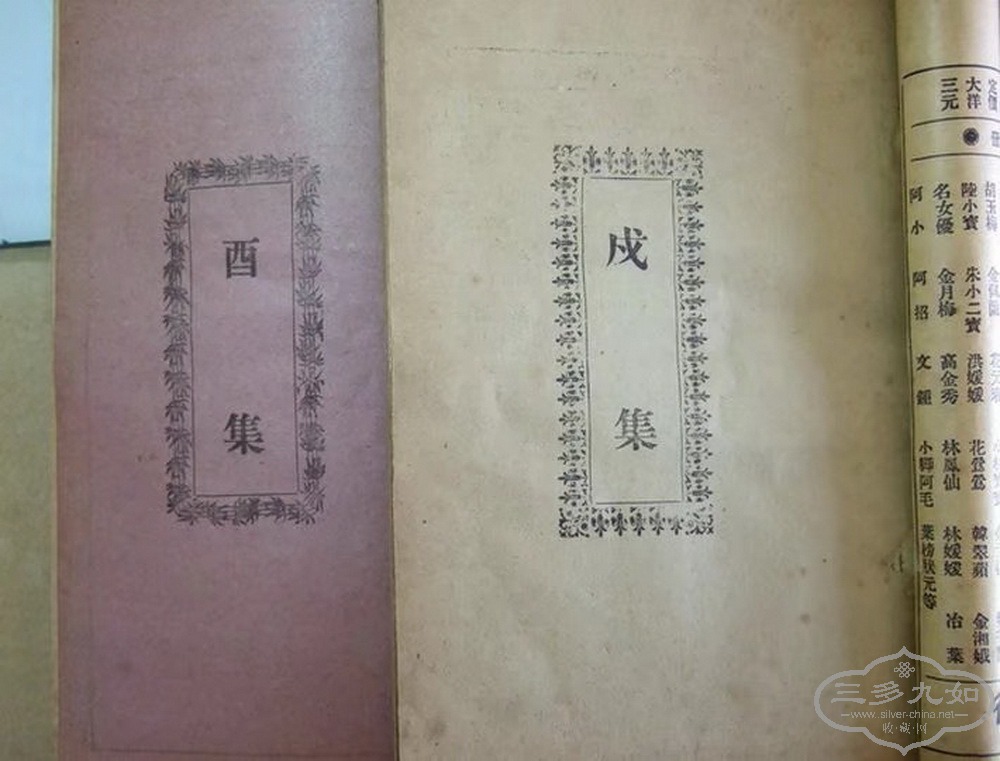 酉集
戌集
定價
大洋
三元
胡玉梅
陸小寶 朱小二寶 洪媛媛 花鶯鶯 韓翠蘋 金湘娥
名女優 金月梅 高金秀 林鳳仙 林媛媛 冶葉
阿小 阿招 文鍾 小獅阿毛 葉榜狀元等
三多九如
www.silver-china.net
收·藏·网